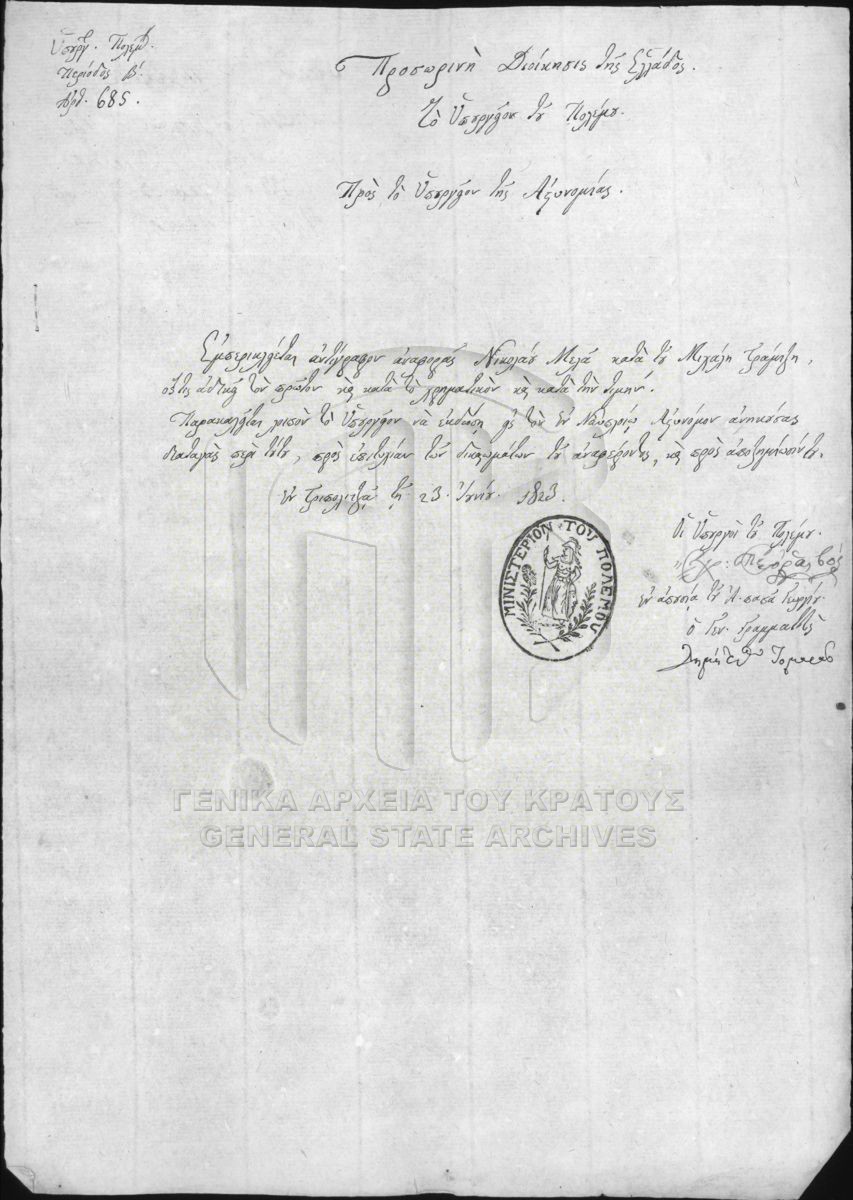 Ὑπουργ. Πολέμ.
Περίοδος Β΄.
Ἀρθ. 685.
Προσωρινὴ Διοίκησις τῆς Ἑλλάδος.
Τὸ Ὑπουργεῖον τοῦ Πολέμου.
Πρὸς τὸ Ὑπουργεῖον τῆς Ἀστυνομίας.
Ἐμπερικλείεται ἀντίγραφον ἀναφορᾶς Νικολάου Μελᾶ κατὰ τοῦ Μιχάλη,
ὅστις τὸν πρῶτον καὶ κατὰ τὸ χρηματικὸν καὶ κατὰ τὴν τιμήν.
Παρακαλεῖται λοιπὸν τὸ Ὑπουργεῖον νὰ ἐκδώσῃ εἰς τὸν ἐν Ἀστυνόμον ἀνηκούσας
διαταγὰς περὶ τούτου, πρὸς ἐπιτυχίαν τῶν δικαιωμάτων τοῦ ἀναφέροντος, καὶ πρὸς ἀποζημίωσίν του.
Ἐν Τριπολιτζᾷ τῇ 23 Ἰουνίου 1823.
Οἱ Ὑπουργοὶ τοῦ Πολέμου.
Χρ: Περραιβός
ἐν ἀπουσίᾳ τοῦ
ὁ Γεν. Γραμματεὺς
ΜΙΝΙΣΤΕΡΙΟΝ ΤΟΥ ΠΟΛΕΜΟΥ
ΓΕΝΙΚΑ ΑΡΧΕΙΑ ΤΟΥ ΚΡΑΤΟΥΣ
GENERAL STATE ARCHIVES